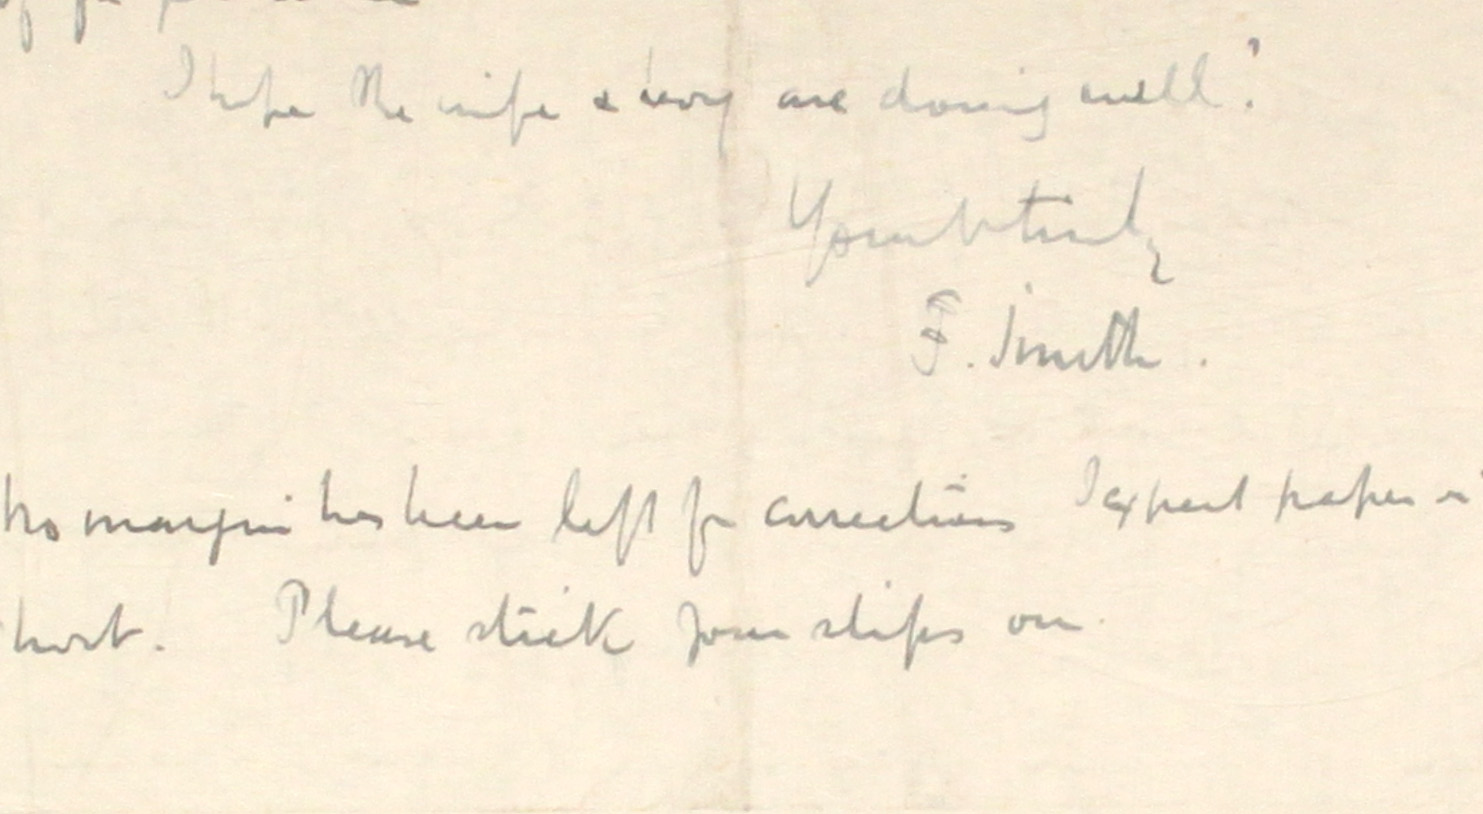 I hope the wife & boy are doing well?
Yours truly
F. Smith.
No margin has been left for corrections I expect paper is
short. Please stick your slips on.